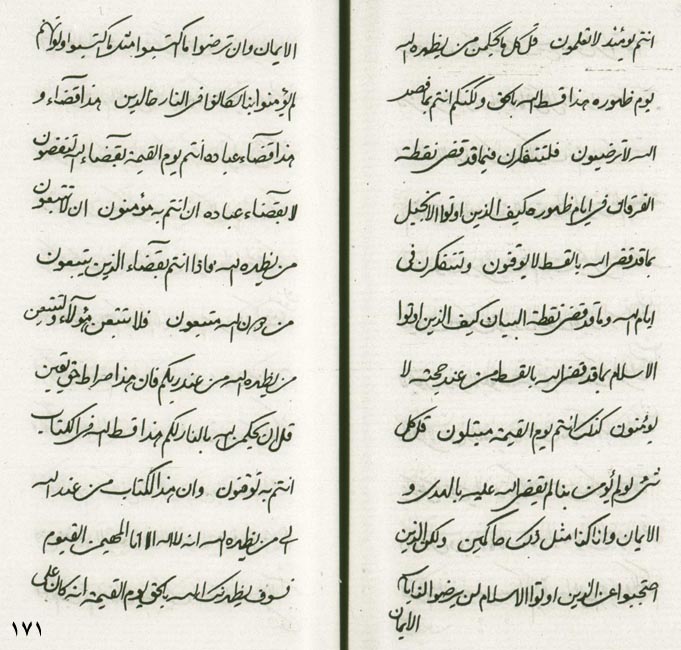 انتم يومئذ لا تعلمون قل كل ما يحكمن من يظهره الله
يوم ظهوره هذا قسط الله بالحق ولكنكم انتم بما قصد
الله لا ترضيون فلتتفكرن فيما قد قضى نقطة
الفرقان في ايام ظهوره كيف الذين اوتوا الانجيل
بما قد قضى الله بالقسط لا يوقنون ولتتفكرن في
ايام الله وما قد قضى نقطة البيان كيف الذين اوتوا
الاسلام بما قد قضى الله بالقسط من عند حجته لا
يؤمنون كذلك انتم يوم القيمة مبتلون قل كل
شيء لو لم يؤمن بنا لم يقض الله عليه بالهدى و
الايمان وانا كنا مثل ذلك حاكمين ولكن الذين
احتجبوا عن الذين اوتوا الاسلام لن يرضوا
الايمان
الايمان وان ترضوا ما اكتسبوا مثل ما اكتسبوا اولو كانهم
لم يؤمنوا بنا لكانوا في النار خالدين هذا قضاء و
هذا قضاء عباده انتم يوم القيمة بقضاء الله تقضون
لا بقضاء عباده ان انتم به مؤمنون ان لا تتبعون
من يظهره الله فاذا انتم بقضاء الذين يتبعون
من دون الله متبعون فلا تتبعن هؤلاء ولتتبعن
من يظهره الله من عند ربكم فان هذا صراط حق يقين
قل ان يحكمن الله بالنار لكم هذا قسط الله في الكتاب
انتم به توقنون وان هذا الكتاب من عند الله
الى من يظهره الله انه لا اله الا انا المهيمن القيوم
فسوف يظهرنك الله بالحق يوم القيمة انه كان على
١٧١